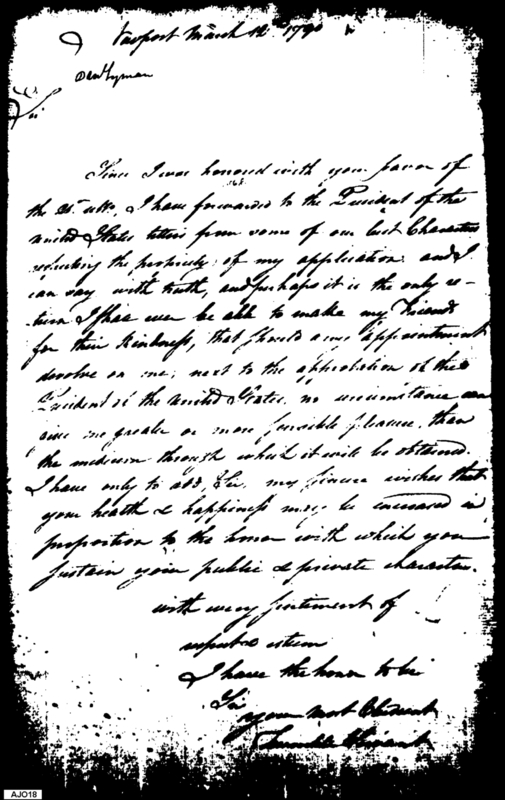 Newport March 12th 1790
Danl Lyman
Sir
Since I was honored with your favor of
the 25. ulto, I have forwarded to the President of the
United States letters from some of our best Characters
respecting the propriety of my application and I
can say with truth, and perhaps it is the only re-
turn I shall ever be able to make my Friends
for their kindness, that should any appointment
devolve on me, next to the approbation of the
President of the United States no circumstance can
give me greater or more sensible pleasure, than
the medium through which it will be obtained.
I have only to add, Sir, my sincere wishes that
your health & happiness may be increased in
proportion to the honor with which you
sustain your public & private character.
with every sentiment of
respect & esteem
I have the honor to be
Sir
your most Obedient
humble Servant
AJO18